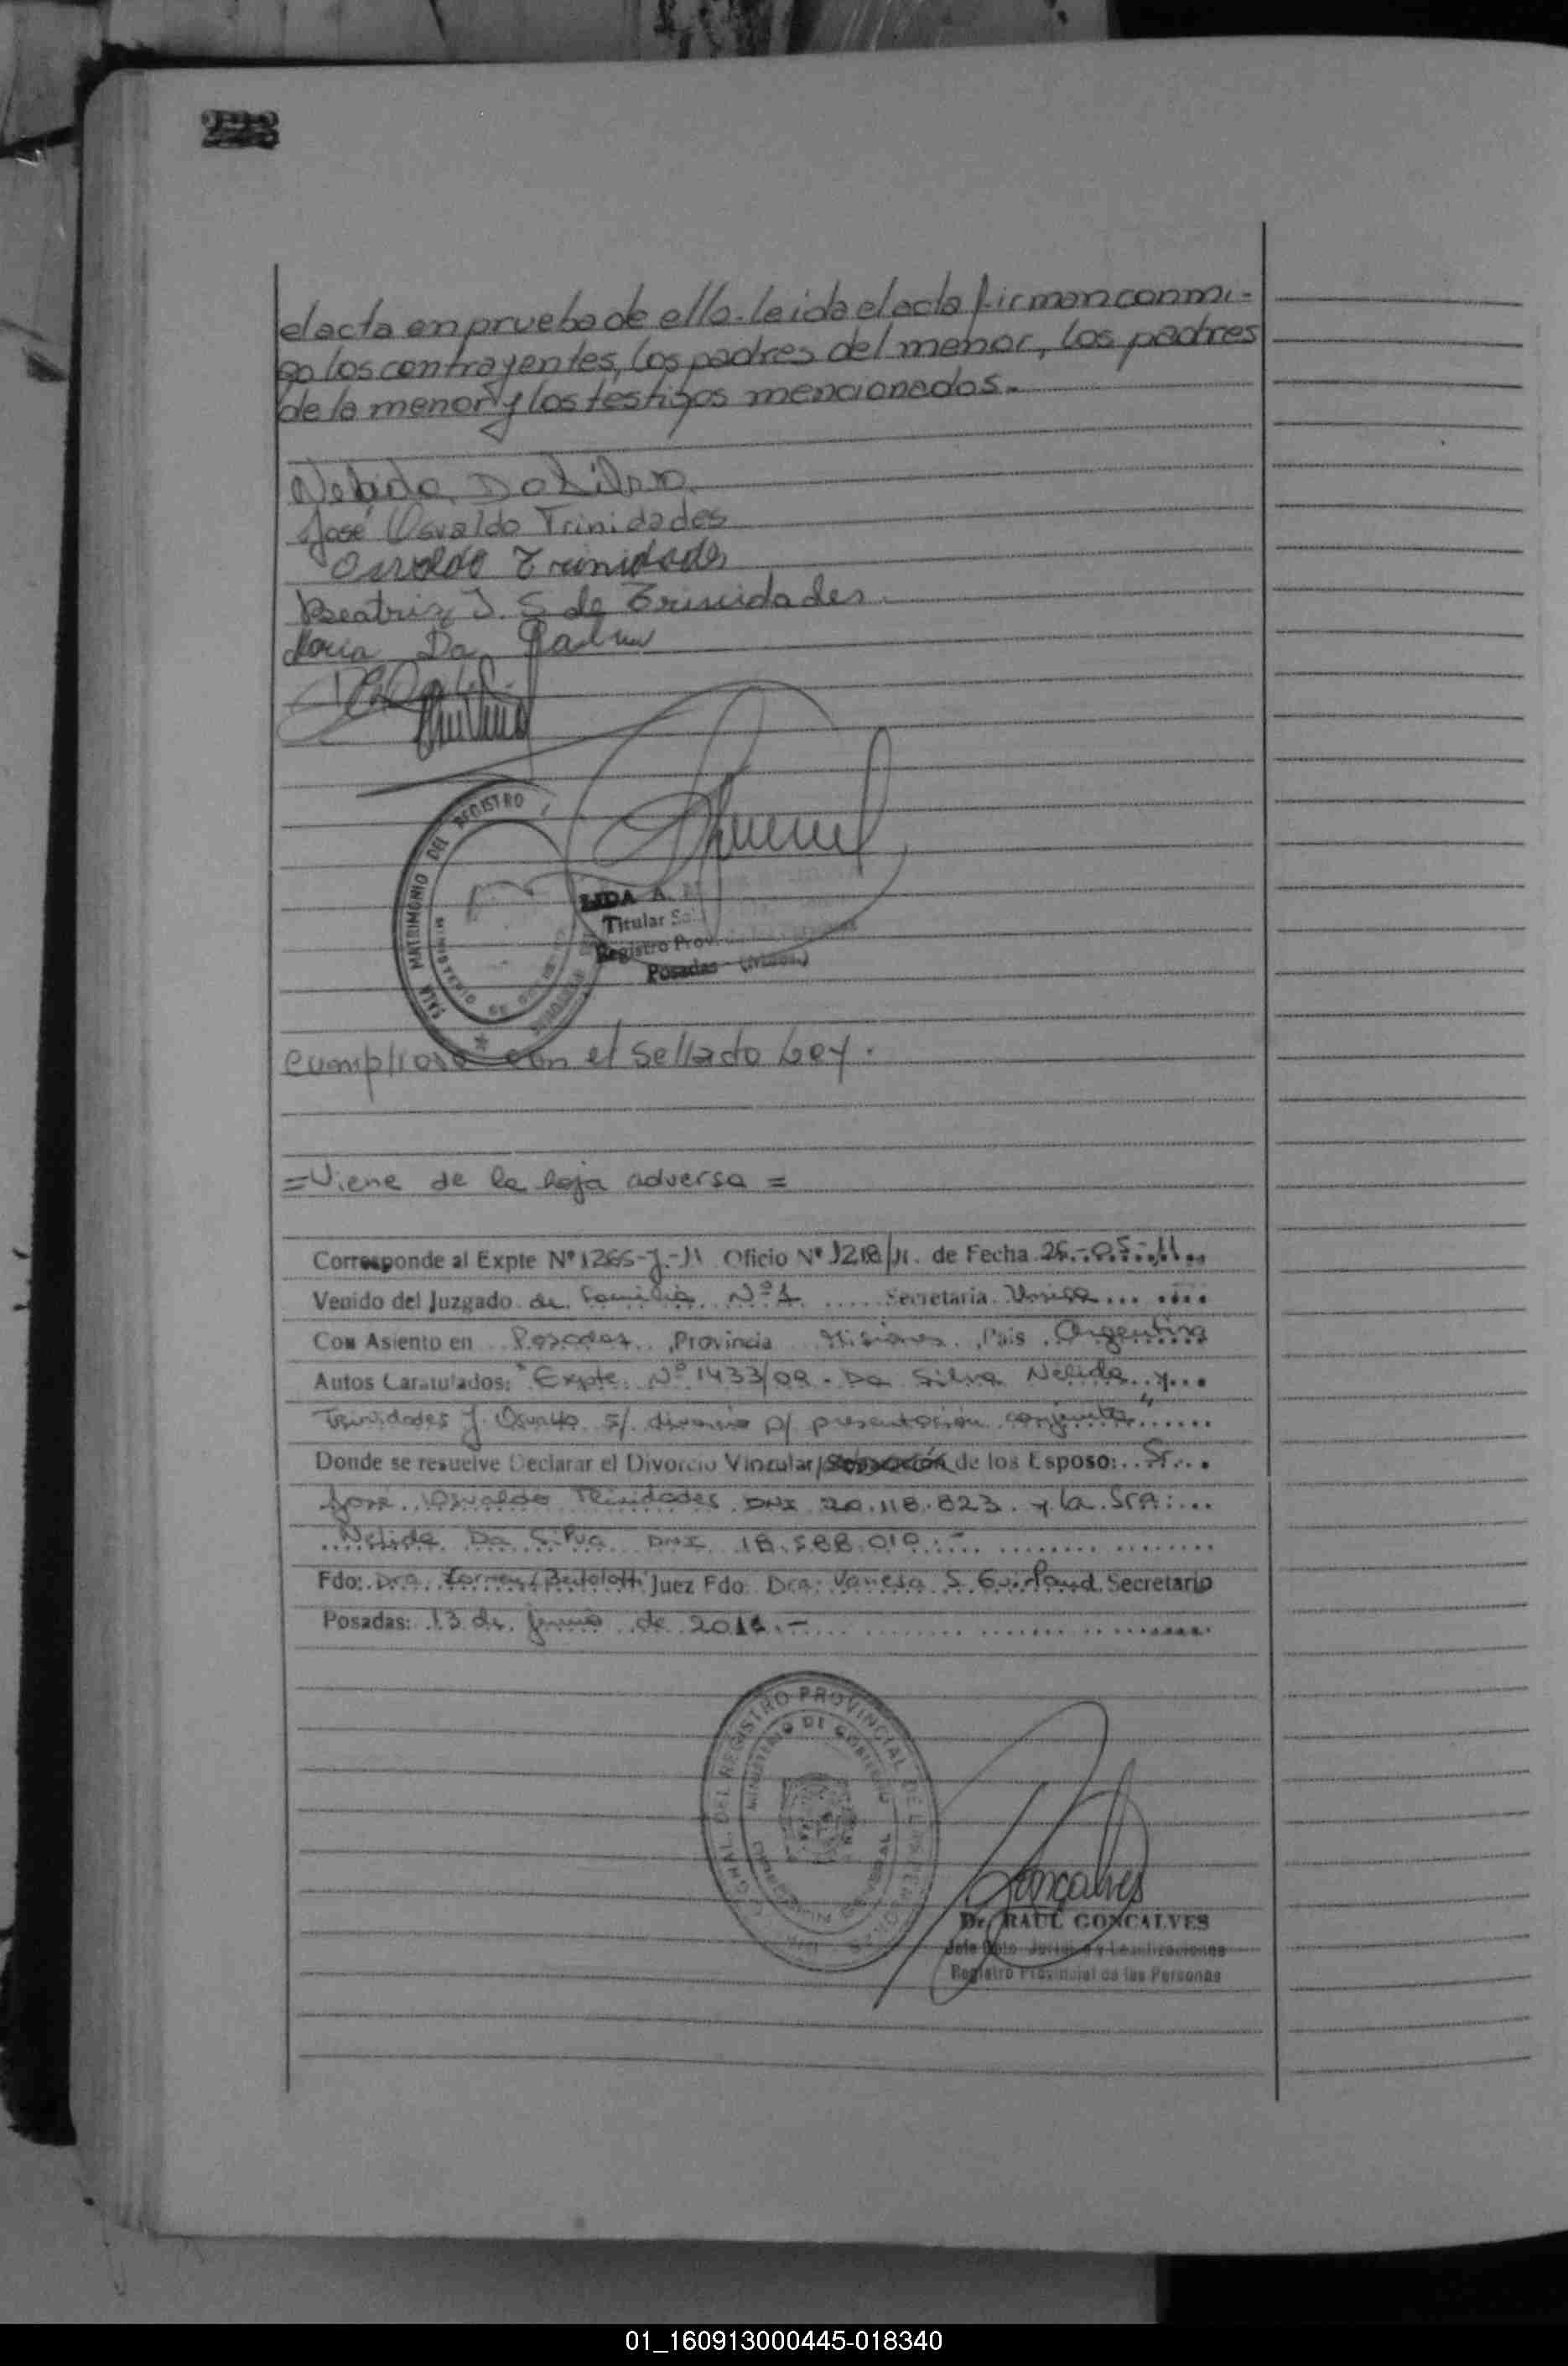 el acta en prueba de ello. leida el acta firman conmi-
go los contrayentes, los padres del menor, los padres
de la menor y los testigos mencionados.
Nelida Da Silva
José Osvaldo Trinidades
Osvaldo Trinidades
Beatriz J. S de Trinidades
Maria Da
SALA MATRIMONIO DEL REGISTRO
MINISTERIO DE
LIDA A.
Titular
Registro Prov
Posadas (Mnes.)
cumplioso con el sellado Ley.
=Viene de la hoja adversa =
Corresponde al Expte Nº 1265-J-11 Oficio Nº 1218/11. de Fecha 26-05-11
Venido del Juzgado de Familia Nº 1 Secretaria Unica
Con Asiento en Posadas, Provincia Misiones, Pais Argentina
Autos Caratulados: "Expte. Nº 1433/09. Da Silva Nelida y
Trinidades J. Osvaldo s/ divorcio p/ presentación conjunta"
Donde se resuelve Declarar el Divorcio Vincular/ de los Esposo: Sr.
José Osvaldo Trinidades DNI 20.118.823 y la Sra:
Nelida Da Silva DNI 18.588.010.-
Fdo: Dra. Juez Fdo Dra: Vanesa S Guirland Secretario
Posadas: 13 de junio de 2011.-
GRAL. DEL REGISTRO PROVINCIAL DE LAS PERSONAS
MINISTERIO DE GOBIERNO
Goncalves
Dr. RAUL GONCALVES
Jefe Dpto. Jurídico y Legalizaciones
Registro Provincial de las Personas
01_160913000445-018340